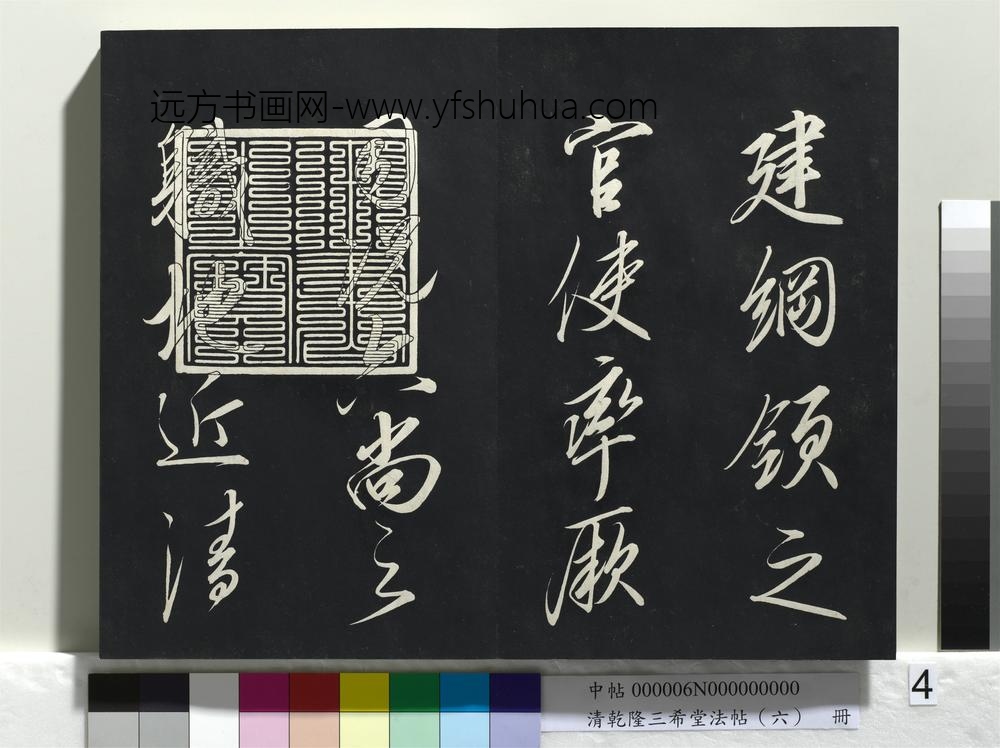 远方书画网-www.yfshuhua.com
建綱領之
官使率厥
司況六尚之
職地近清
4
中帖 000006N000000000
清乾隆三希堂法帖（六） 冊